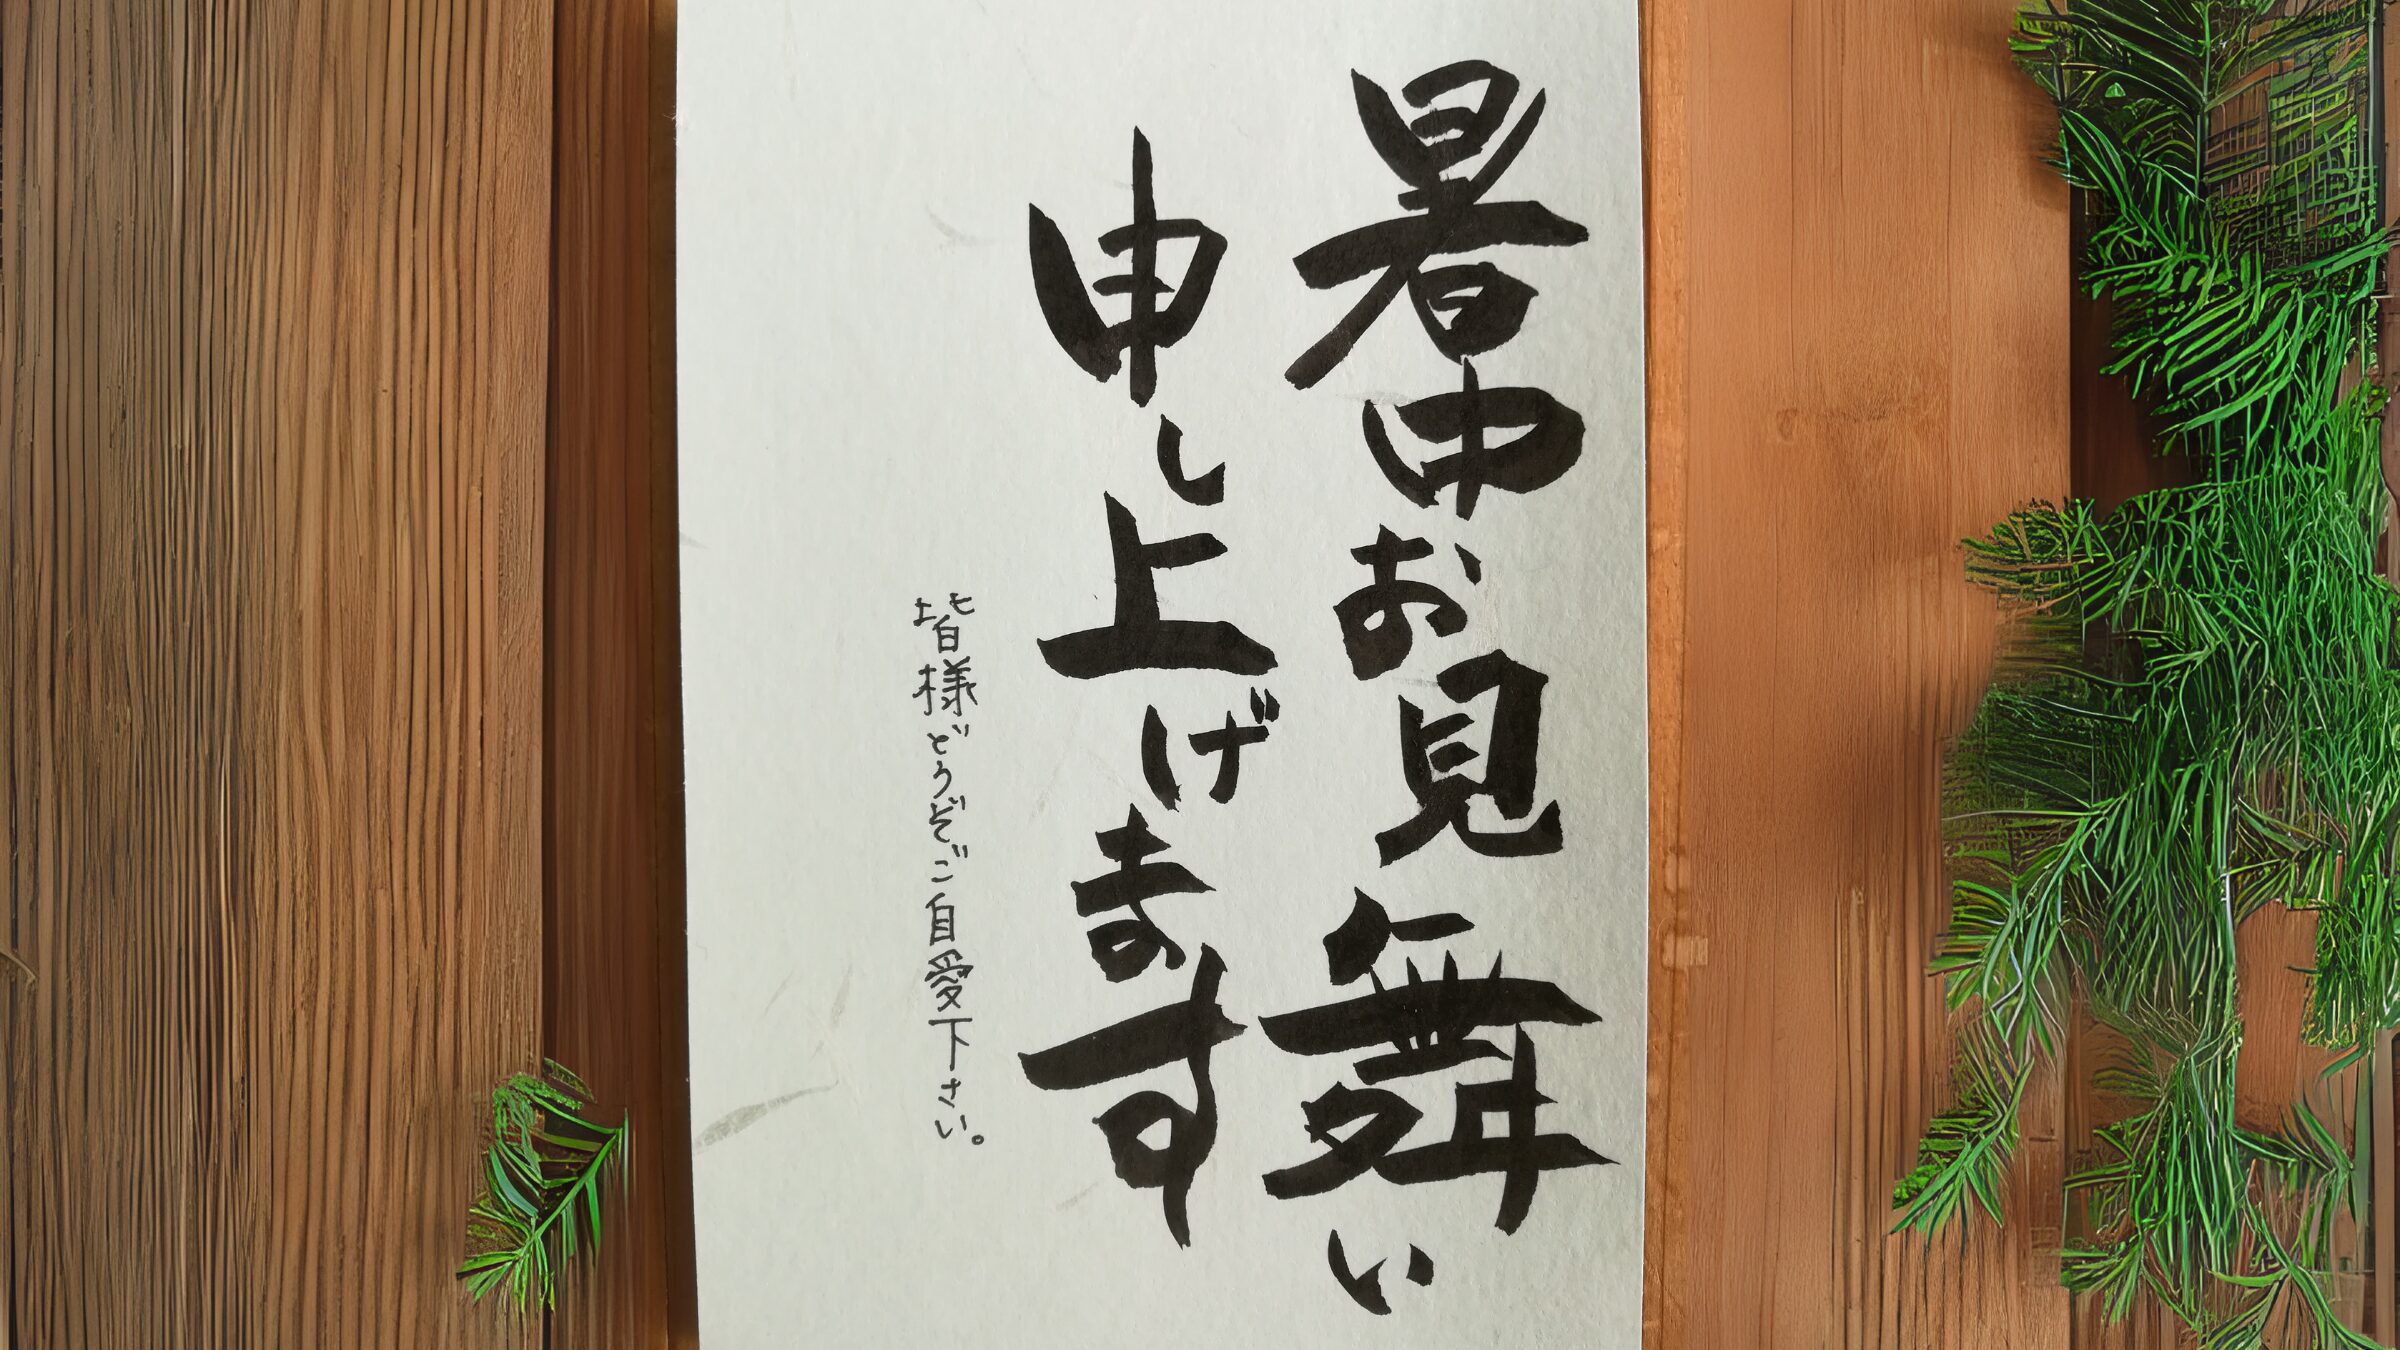 暑中お見舞い
申し上げます
皆様どうぞご自愛下さい。